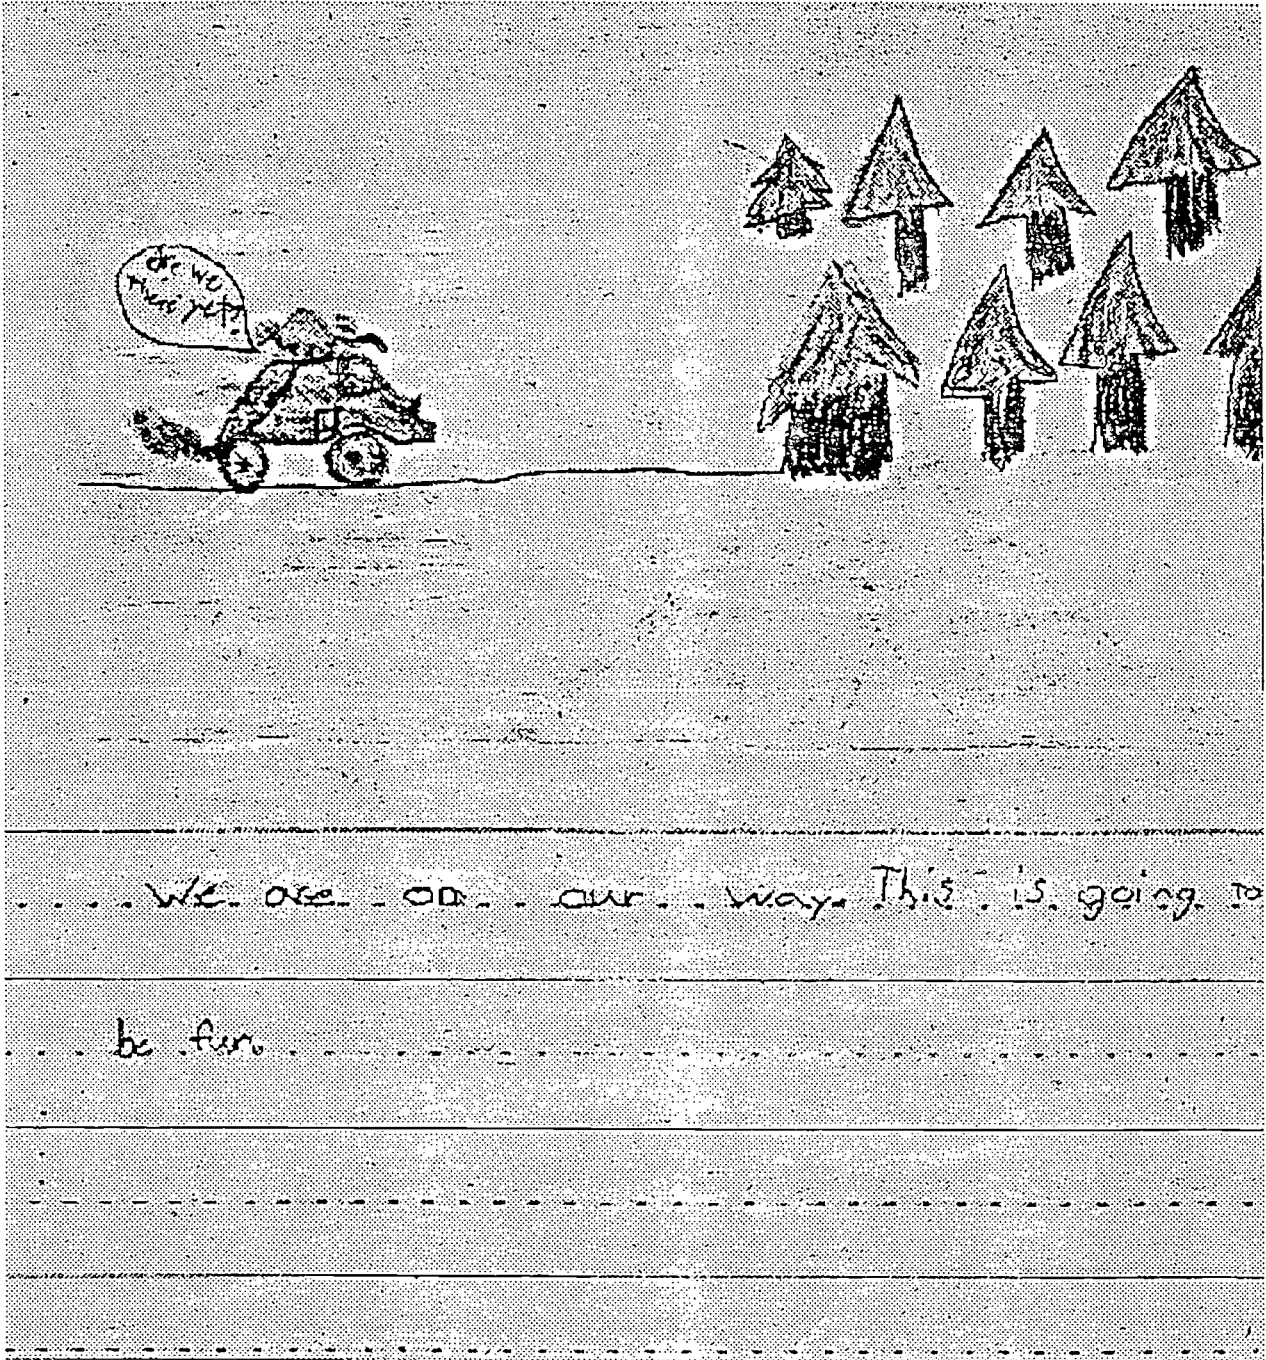 are we
there yet?
We are on our way. This is going to
be fun.